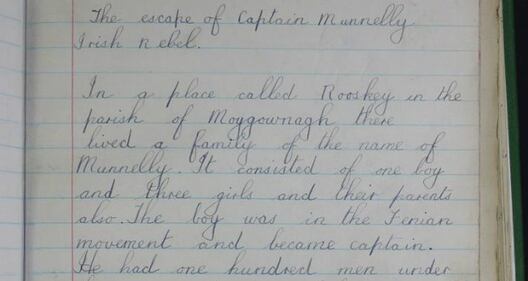 The escape of Captain Munnelly
Irish Rebel.
In a place called Rooskey in the
parish of Moygownagh there
lived a family of the name of
Munnelly. It consisted of one boy
and three girls and their parents
also. The boy was in the Fenian
movement and became captain.
He had one hundred men under